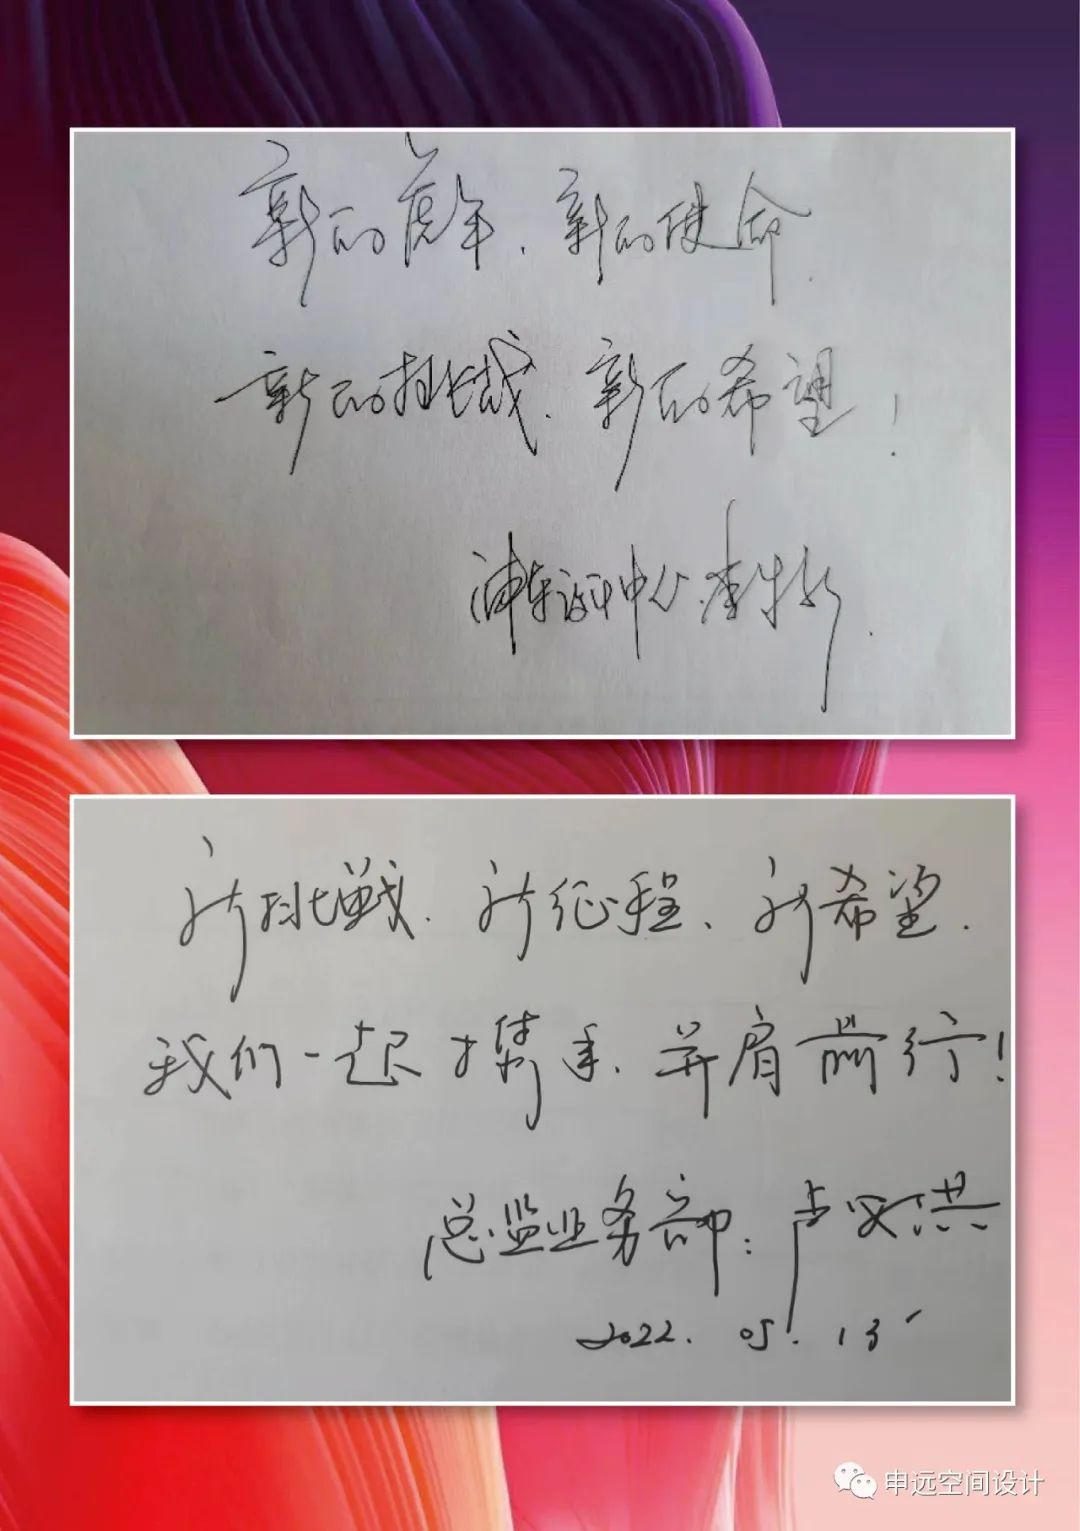 新的虎年、新的使命
新的挑战、新的希望！
浦东设计中心 李
新挑战、新征程、新希望.
我们一起携手、并肩前行！
总监业务部：卢文洪
2022.05.13
申远空间设计